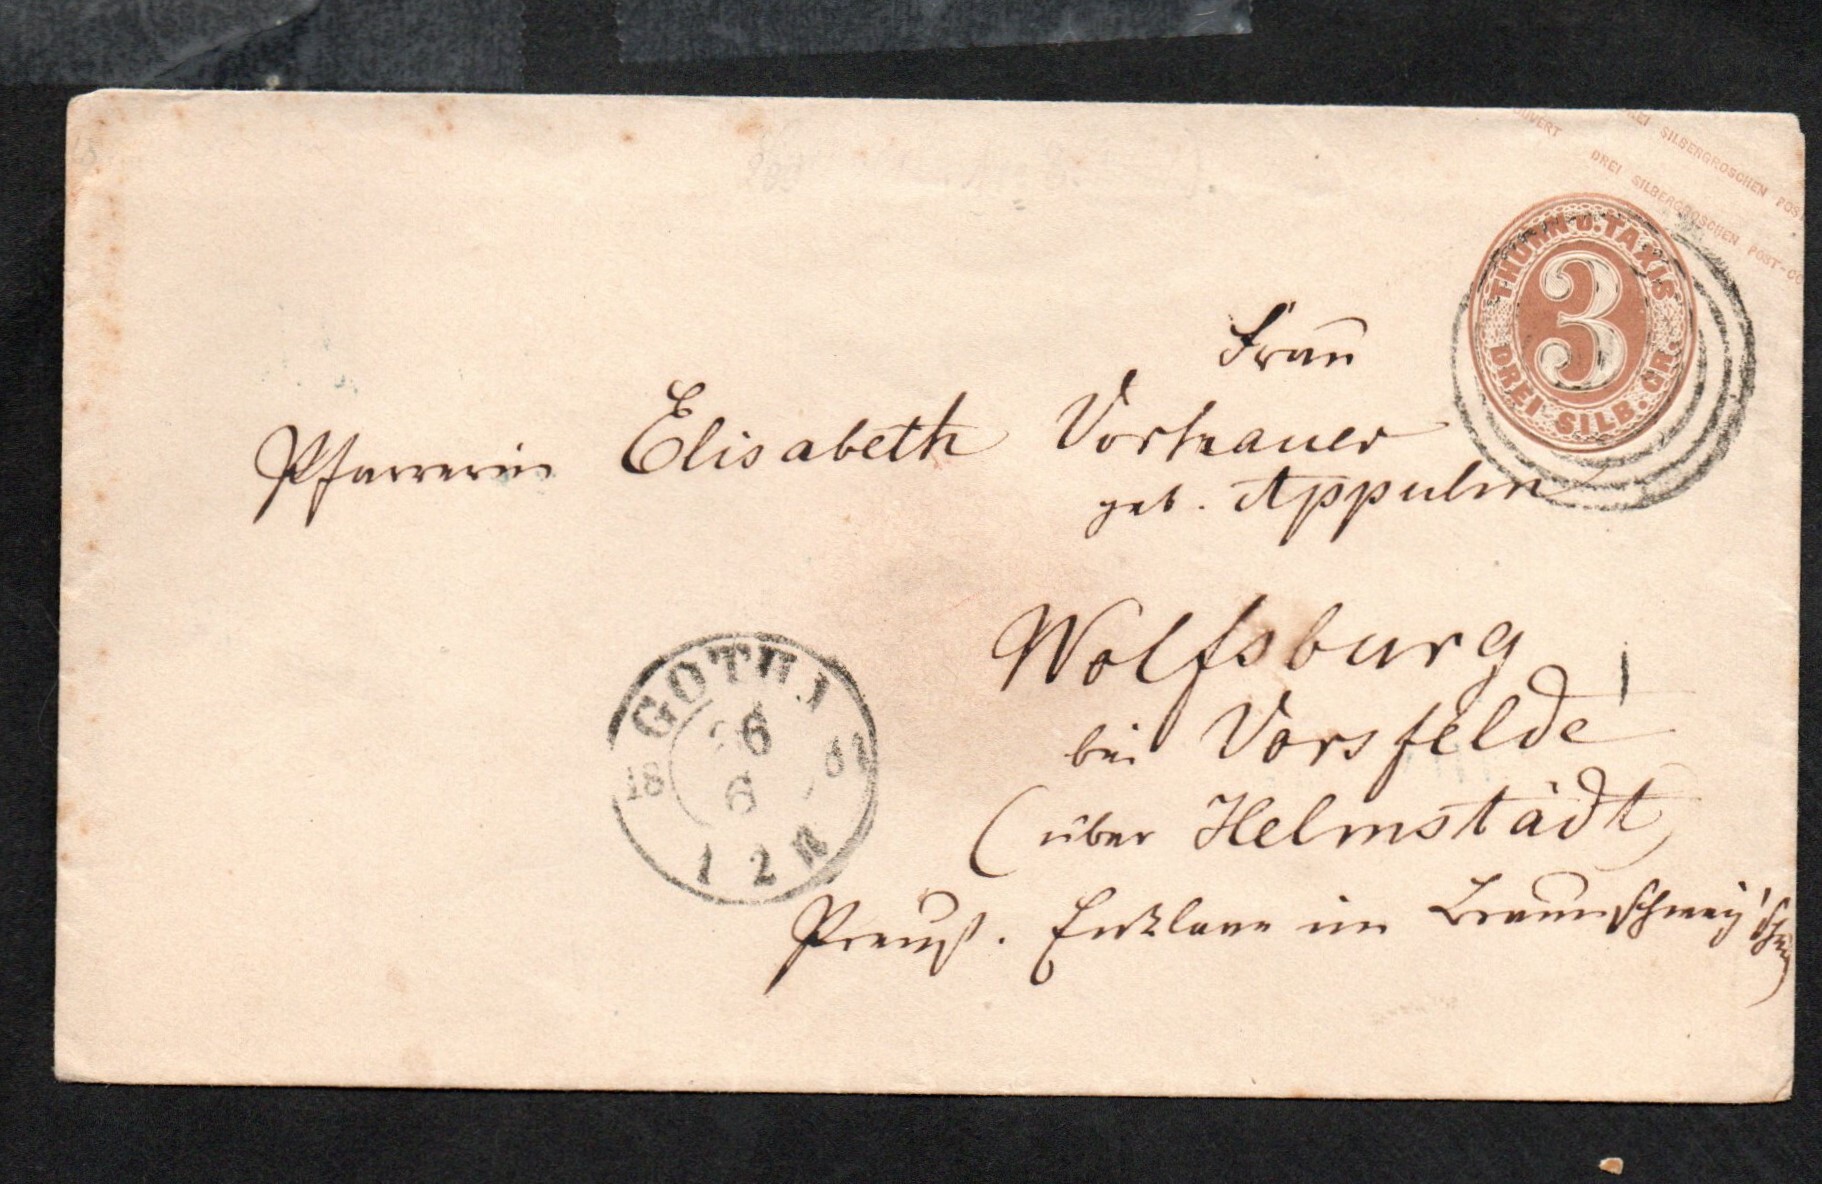 DREI SILBERGROSCHEN POST
DREI SILBERGROSCHEN POST-CO
THURN U. TAXIS
3
DREI SILB. GR.
Frau
Pfarrerin Elisabeth Vortrauer
geb. Appulm
Wolfsburg
bei Vorsfelde
(über Helmstädt)
Preuß. Enklave im Braunschweig'schen
GOTHA
26
6
18 6
1 2 N